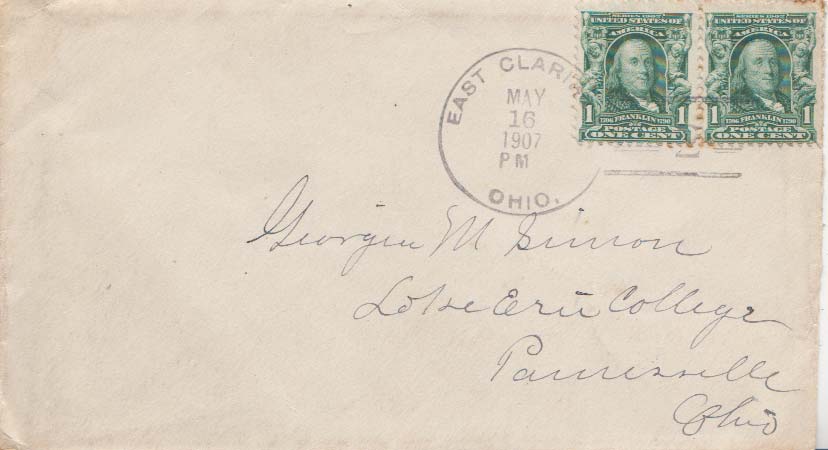 SERIES 1902 SERIES 1902
UNITED STATES OF UNITED STATES OF
AMERICA AMERICA
1 1 1 1
1706 FRANKLIN 1790 1706 FRANKLIN 1790
POSTAGE POSTAGE
ONE CENT ONE CENT
EAST CLARI
MAY
16
1907
PM
OHIO.
2
Georgia M Simon
Lake Erie College
Painesville
Ohio